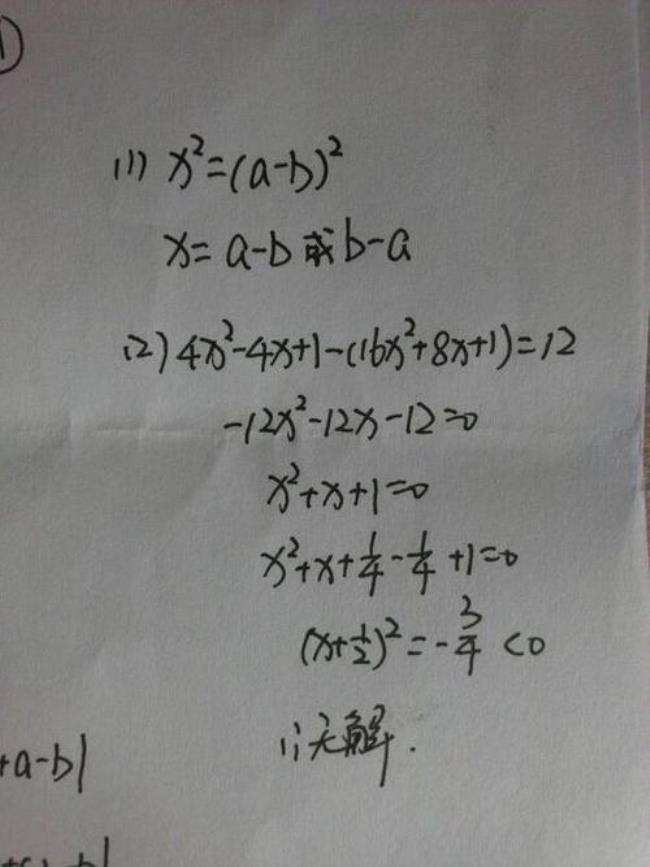 1
(1) x²=(a-b)²
x=a-b或b-a
(2) 4x²-4x+1-(16x²+8x+1)=12
-12x²-12x-12=0
x²+x+1=0
x²+x+1/4-1/4+1=0
(x+1/2)²=-3/4<0
∴无解.
+a-b|